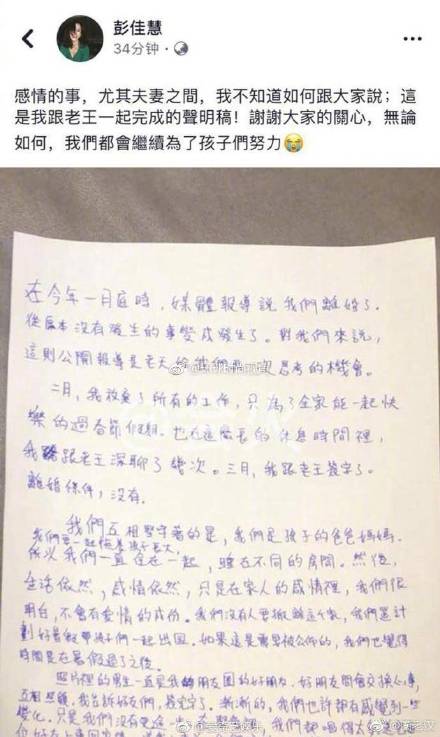 彭佳慧
34分钟 ·
感情的事，尤其夫妻之間，我不知道如何跟大家說；這
是我跟老王一起完成的聲明稿！謝謝大家的關心，無論
如何，我們都會繼續為了孩子們努力😭
在今年一月底時，媒體報導說我們離婚了。
從原本沒有發生的事變成發生了。對我們來說，
這則公開報導是老天給我們一次思考的機會。
二月，我放棄了所有的工作，只為了全家能一起快
樂的過春節假期。也在這麼長的休息時間裡，
我跟老王深聊了幾次。三月，我跟老王簽字了。
離婚條件，沒有。
我們互相堅守著的是，我們是孩子的爸爸媽媽。
我們要一起陪著孩子長大，
所以我們一直住在一起，睡在不同的房間。然後，
生活依然，感情依然，只是在家人的感情裡，我們很
明白，不會有愛情的成份。我們沒有人要拆散這個家，我們還計
劃好暑假帶孩子們一起出國。如果這是需要被公佈的，我們也覺得
時間是在暑假過了之後。
照片裡的男生一直是我朋友圈的好朋友，好朋友間會交換心事，
互相照顧。我告訴好友們，簽完字了。漸漸的，我們也許都有感覺到一些
變化。只是我們沒有